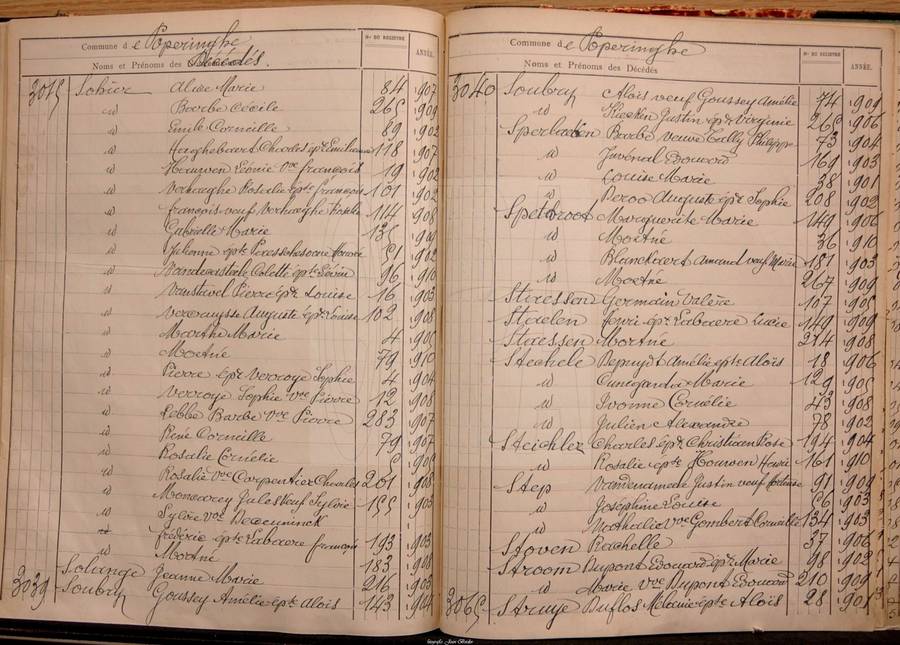 Commune de Poperinghe
Nos DU REGISTRE
ANNÉE.
Noms et Prénoms des Décédés.
3015 Sohier Alice Marie 84 1907
id Barbe Cécile 265 1909
id Emile Corneille 89 1902
id Heeghebaert Charles épx 118 1907
id Houwen Léonie Vve françois 19 1902
id Verhaeghe Rosalie épte françois 101 1902
id françois veuf Verhaeghe Rosalie 114 1908
id Gabrielle Marie 135
id Julienne épte 51 1902
id Colette épte 96 1910
id Vanstavel Pierre épx Louise 16 1903
id Vercruysse Auguste épx Louise 102 1908
id Marthe Marie 4
id Mortné 79 1910
id Pierre épx Verroye Sophie 4 1904
id Verroye Sophie Vve Pierre 12 1908
id Lebbe Barbe Vve Pierre 283 1907
id René Corneille 79 1907
id Rosalie Cornélie
id Rosalie Vve Carpentier Charles 201 1908
id Monserez Jules veuf Sylvie 155 1903
id Sylvie Vve Deceuninck
id frédéric épte Labaere françois 193 1903
id Mortné 183 1908
Solange Jeanne Marie 216 1903
3039 Soubry Goussey Amélie épte Aloïs 143 1904
Commune de Poperinghe
Nos DU REGISTRE
ANNÉE.
Noms et Prénoms des Décédés
3040 Soubry Aloïs veuf Goussey Amélie 74 1909
id Justin épx Virginie 265 1906
Barbe veuve Tally Philippe 73 1904
id Juvénal Edouard 169 1903
id Louise Marie 38 1901
id Auguste épx Sophie 208 1902
Spetbroot Marguerite Marie 149 1906
id Mortné 36 1910
id Blanckaert Amand veuf Marie 181 1903
id Mortné 267 1909
Staessen Germain Valère 107 1905
Staelen Henri épx Labaere Lucie 149 1909
Staessen Mortné 214 1908
Stechele Depuydt Amélie épte Aloïs 18 1906
id Cunégonda Marie 129 1905
id Ivonne Cornélie 43 1908
id Julien Alexandre 78 1902
Steichler Charles épx Christiaen Rose 194 1904
id Rosalie épte Houwen Henri 161 1910
Step Vandenameele Justin veuf 91 1904
id Joséphine Louise 56 1903
id Nathalie Vve Gombert Corneille 134 1903
Stoven Rachelle 37 1906
Stroom Dupont Edouard épx Marie 98 1902
id Marie Vve Dupont Edouard 210 1909
3065 Struye Duflos Mélanie épte Aloïs 28 1901